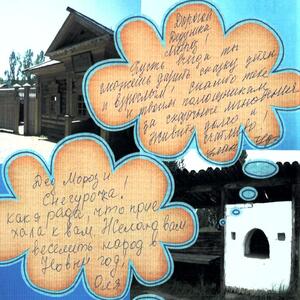 Дорогой
Дедушка
Мороз
Пусть всегда ты
сможешь дарить сказку детям
и взрослым! Спасибо тебе
и твоим помощникам
за сказочные мгновения
Живите долго и
Дед Мороз и
Снегурочка!
как я рада, что прие
хала к вам. Желаю вам
веселить народ в
Новый год!
Оля